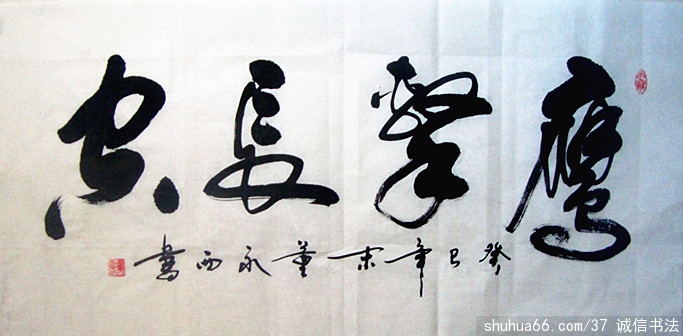 鷹擊長空
癸巳年末董永西書
shuhua66.com/37 诚信书法